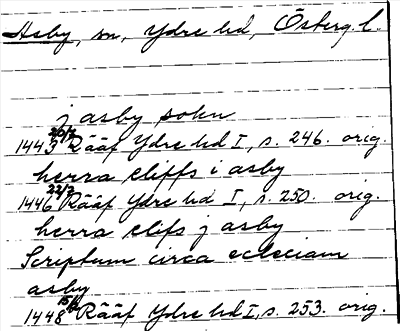 Asby, sn, Ydre hd, Österg. l.
j asby sokn
1443 20/7 Rääf Ydre hd I, s. 246. orig.
herra cliffs i asby
1446 22/7 Rääf Ydre hd I, s. 250. orig.
herra clifs j asby
Scriptum circa eclesiam
asby
1448 Rääf Ydre hd I, s. 253. orig.